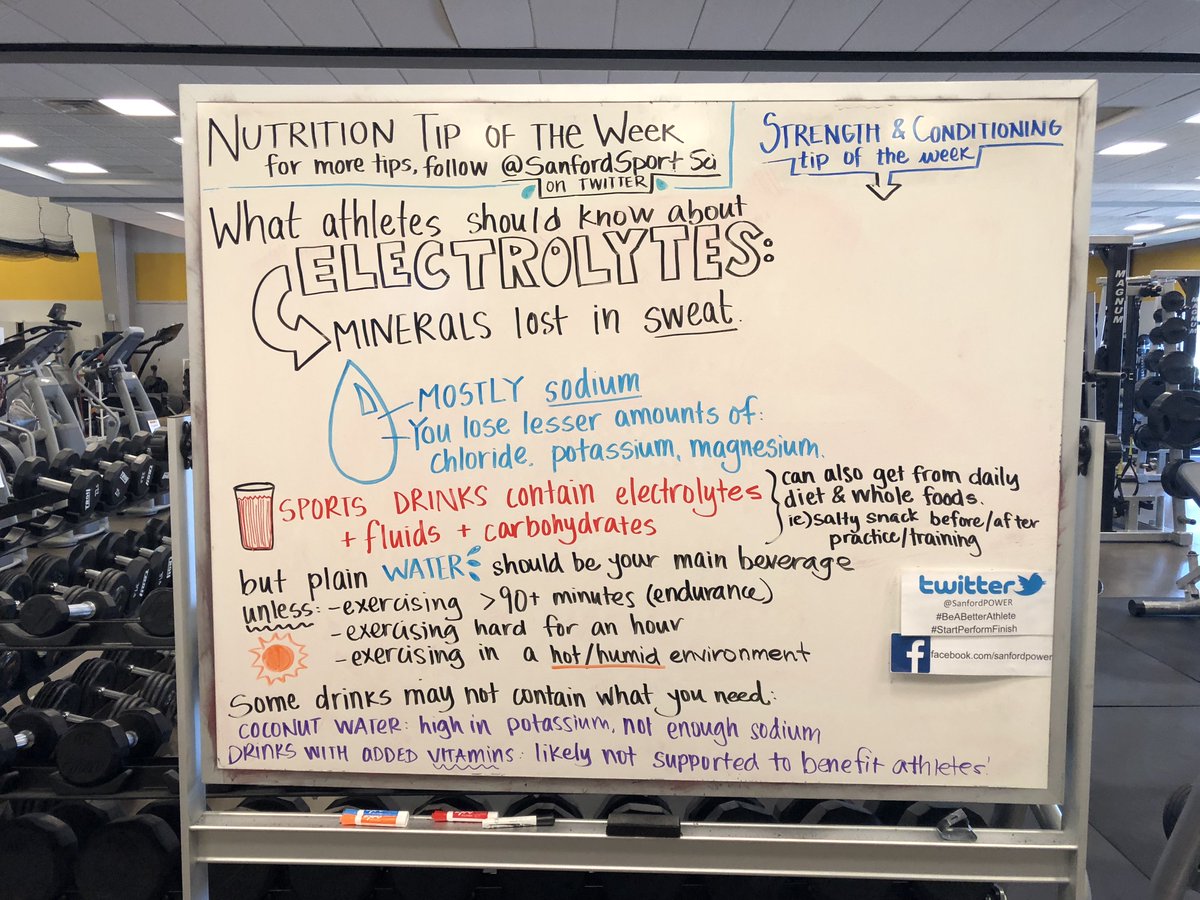 NUTRITION TIP OF THE WEEK
for more tips, follow @SanfordSportSci
on TWITTER
What athletes should know about
ELECTROLYTES:
MINERALS lost in sweat.
MOSTLY sodium
You lose lesser amounts of:
chloride, potassium, magnesium.
SPORTS DRINKS contain electrolytes
+ fluids + carbohydrates
can also get from daily
diet & whole foods.
ie) salty snack before/after
practice/training
but plain WATER should be your main beverage
unless: - exercising >90+ minutes (endurance)
- exercising hard for an hour
- exercising in a hot/humid environment
Some drinks may not contain what you need:
COCONUT WATER: high in potassium, not enough sodium
DRINKS WITH ADDED VITAMINS: likely not supported to benefit athletes!
STRENGTH & CONDITIONING
tip of the week
twitter
@SanfordPOWER
#BeABetterAthlete
#StartPerformFinish
f facebook.com/sanfordpower
MAGNUM